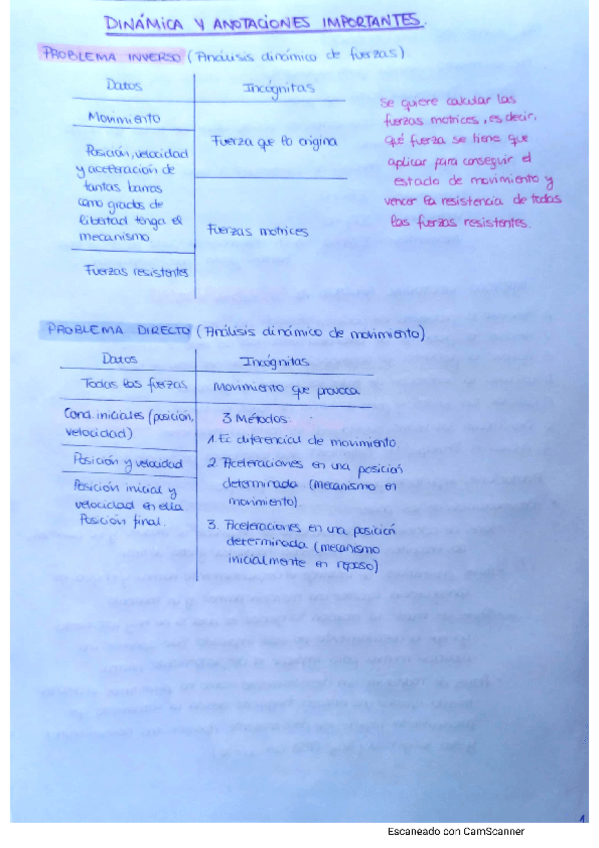 DINÁMICA Y ANOTACIONES IMPORTANTES.
PROBLEMA INVERSO (Análisis dinámico de fuerzas)
Datos
Incógnitas
Movimiento
Fuerza que lo origina
Posición, velocidad
y aceleración de
tantas barras
como grados de
libertad tenga el
mecanismo
Fuerzas motrices
Fuerzas resistentes
Se quiere calcular las
fuerzas motrices, es decir,
qué fuerza se tiene que
aplicar para conseguir el
estado de movimiento y
vencer la resistencia de todas
las fuerzas resistentes.
PROBLEMA DIRECTO (Análisis dinámico de movimiento)
Datos
Incógnitas
Todas las fuerzas
Movimiento que provoca
Cond. iniciales (posición,
velocidad)
Posición y velocidad
Posición inicial y
velocidad en ella
Posición final.
3 Métodos:
1. Ec diferencial de movimiento
2. Aceleraciones en una posición
determinada (mecanismo en
movimiento).
3. Aceleraciones en una posición
determinada (mecanismo
inicialmente en reposo)
1
Escaneado con CamScanner